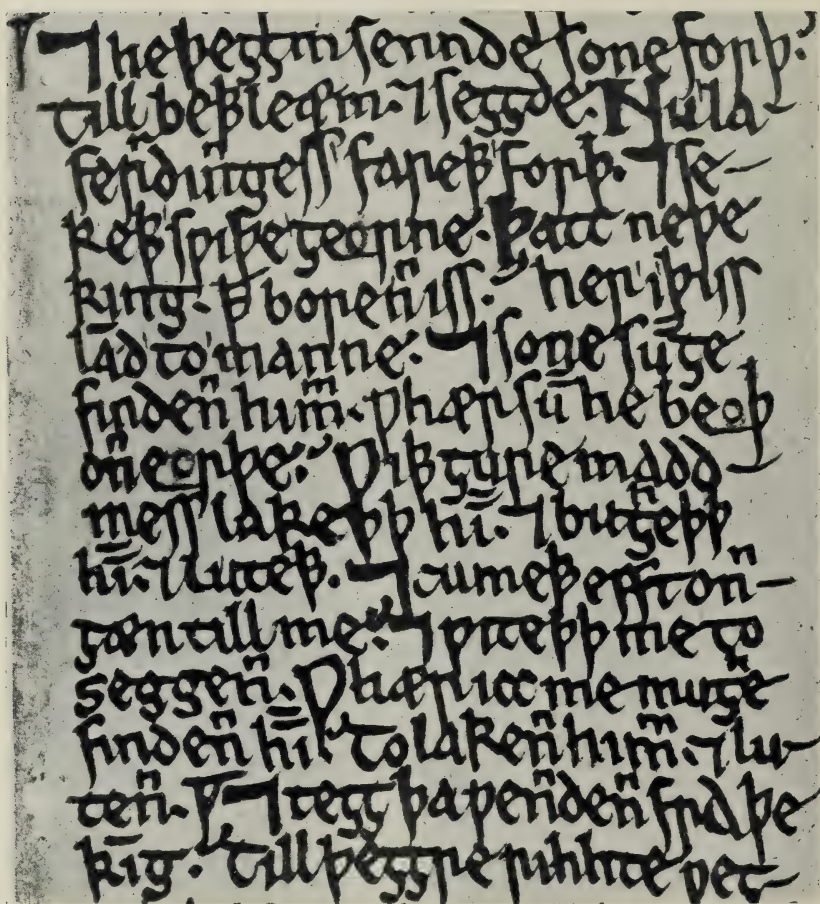 ⁊ he þeȝȝm sennde sone forþ.
till beþþleæm. ⁊ seȝȝde. Nu la-
ferrdinngess fareþþ forþ. ⁊ se-
keþþ swiþe ȝeorne. þatt newe
king. þ borenn iss. her i þiss
land to manne. ⁊ sone sum̄ ȝe
findenn himm. whær sum̄ he beoþ
onn eorþe. wiþþ ȝure madd-
mess lakeþþ him̄. ⁊ buȝheþþ
him̄. ⁊ luteþþ. ⁊ cumeþþ efft onn-
ȝæn till me. ⁊ witeþþ me to
seggenn. whær icc me muȝhe
findenn him̄. To lakenn himm. ⁊ lu-
tenn. ⁊ teȝȝ þa wenndenn fra þe
king. Till þeȝȝre rihhte weȝ-